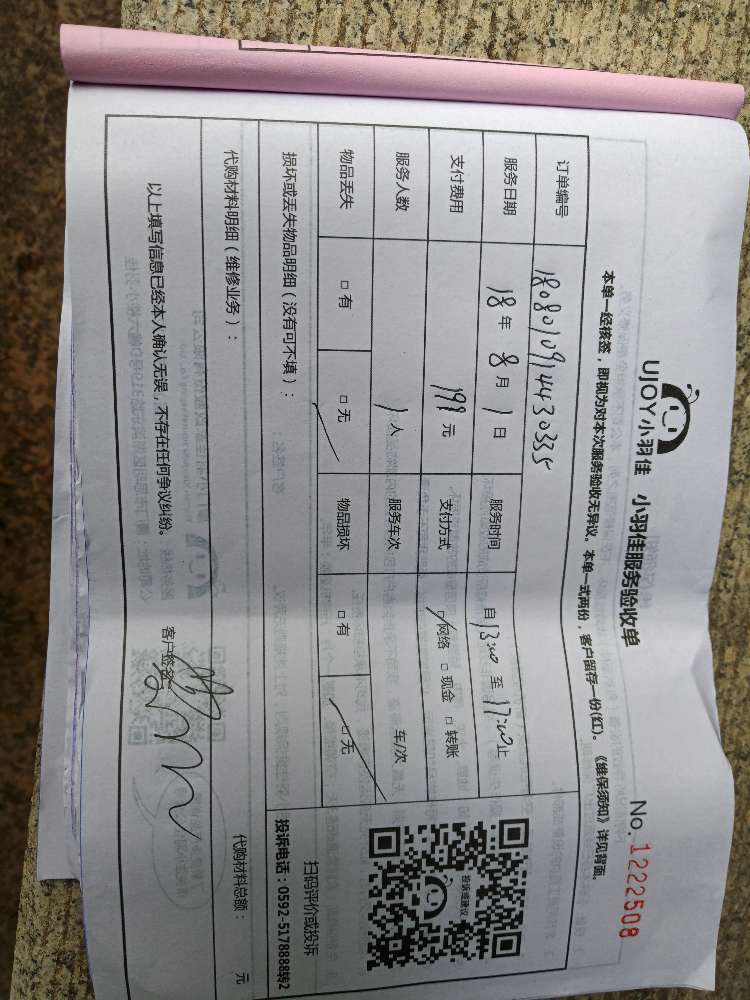 UJOY小羽佳 小羽佳服务验收单
No. 1222508
本单一经核签，即视为对本次服务验收无异议。本单一式两份，客户留存一份(红)。《维保须知》详见背面。
订单编号 18080109144430335
服务日期 18年 8月 1日 服务时间 自13:00至17:00止
支付费用 199元 支付方式 网络 □现金 □转账
服务人数 1人 服务车次 车/次
物品丢失 □有 □无 物品损坏 □有 □无
投诉或建议
扫码评价或投诉
投诉电话：0592-5178888转2
损坏或丢失物品明细（没有可不填）：
代购材料明细（维修业务）：
代购材料总额： 元
以上填写信息已经本人确认无误，不存在任何争议纠纷。
客户签名